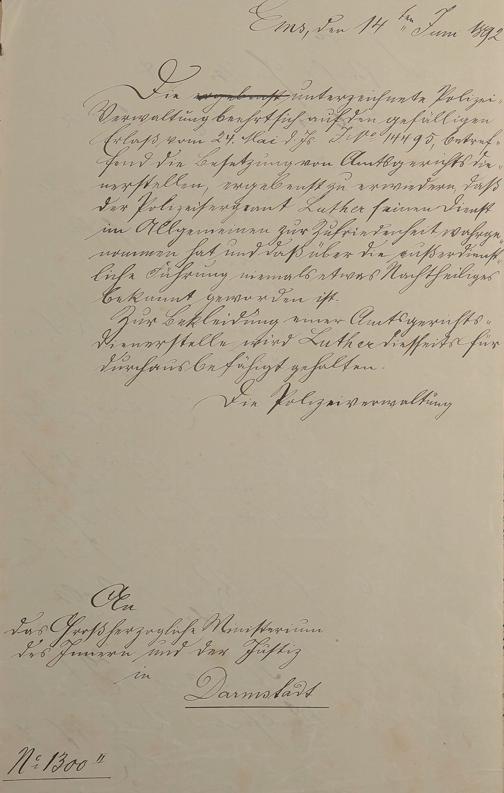 Ems, den 14ten Juni 1892
Die ergebenst unterzeichnete Polizei-
Verwaltung beehrt sich auf den gefälligen
Erlaß vom 24. Mai d. Js. No 14495, betref-
fend die Besetzung von Amtsgerichtsdie-
nerstellen, ergebenst zu erwiedern, daß
der Polizeisergeant Luther seinen Dienst
im Allgemeinen zur Zufriedenheit wahrge-
nommen hat und daß über die außerdienst-
liche Führung niemals etwas Nachtheiliges
bekannt geworden ist.
Zur Bekleidung einer Amtsgerichts-
dienerstelle wird Luther diesseits für
durchaus befähigt gehalten.
Die Polizeiverwaltung
An
das Großherzogliche Ministerium
des Innern und der Justiz
in
Darmstadt
No 1300 II